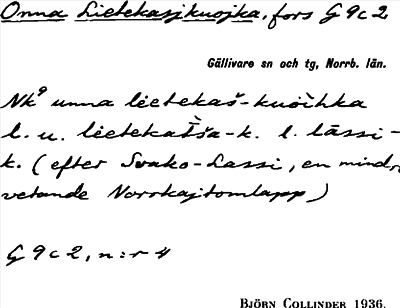 Onna Lietekasjkuojka, fors G 9 c 2
Gällivare sn och tg, Norrb. län.
Nk⁹ unna lietekaš-kuoihka
l. u. lietekatša-k. l. lāssi-
k. (efter Svako-Lassi, en mindre
vetande Norrkajtomlapp)
G 9 c 2, n:r 4
BJÖRN COLLINDER 1936.